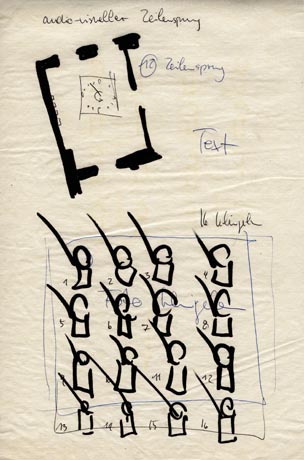 audio-visueller Zeilensprung
12 Zeilensprung
Text
16 Klingeln
1 2 3 4
Foto Klingeln
5 6 7 8
11 12
13 14 15 16